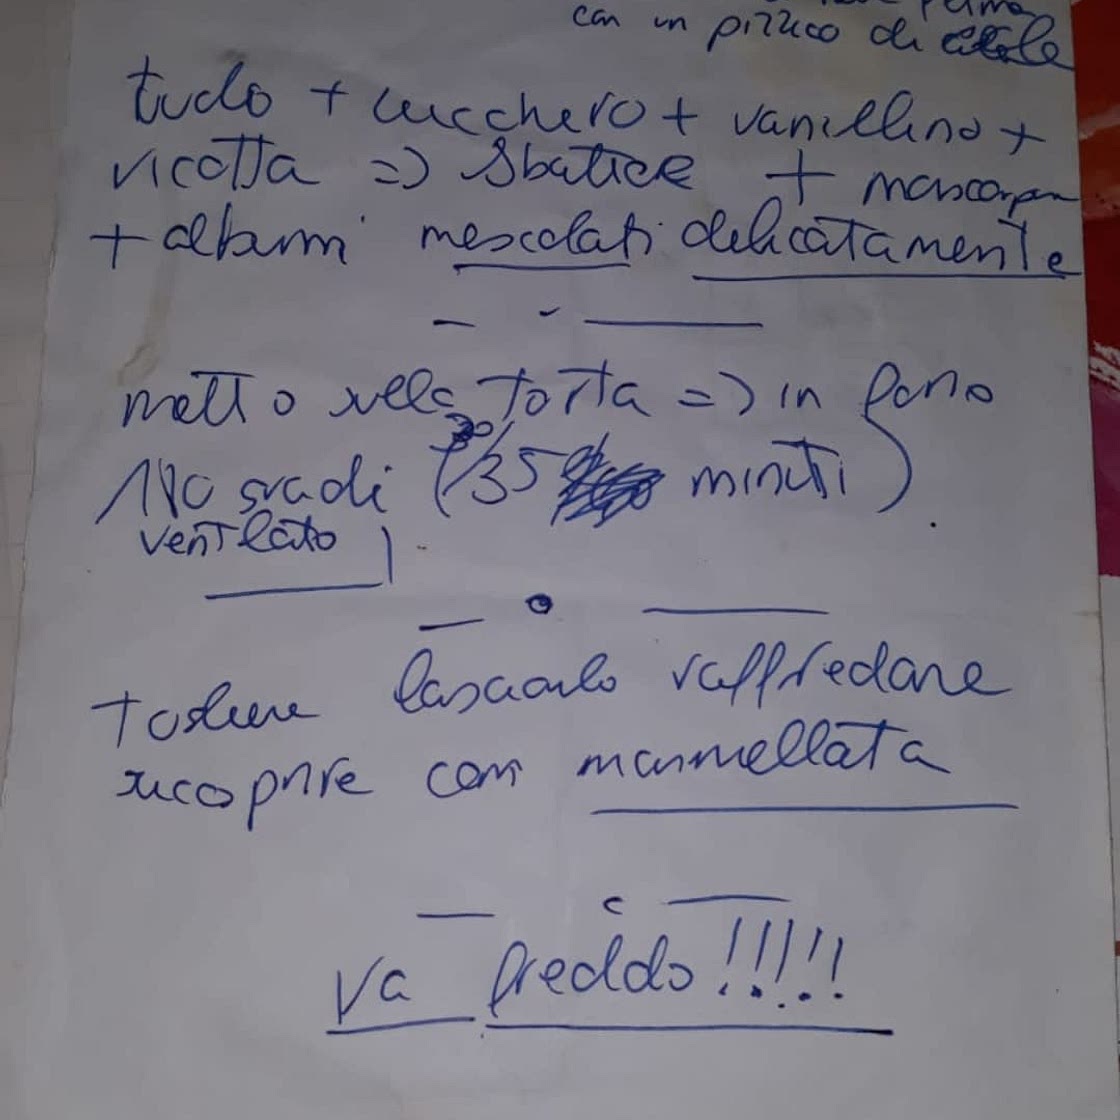 prima
con un pizzico di
tudlo + zucchero + vanillino +
ricotta => Sbattere + mascarpon
+ albumi mescolati delicatamente
metto nella torta => in forno
30/35 minuti)
gradi
ventilato
togliere lasciarlo raffreddare
ricoprire con marmellata
va freddo!!!!!